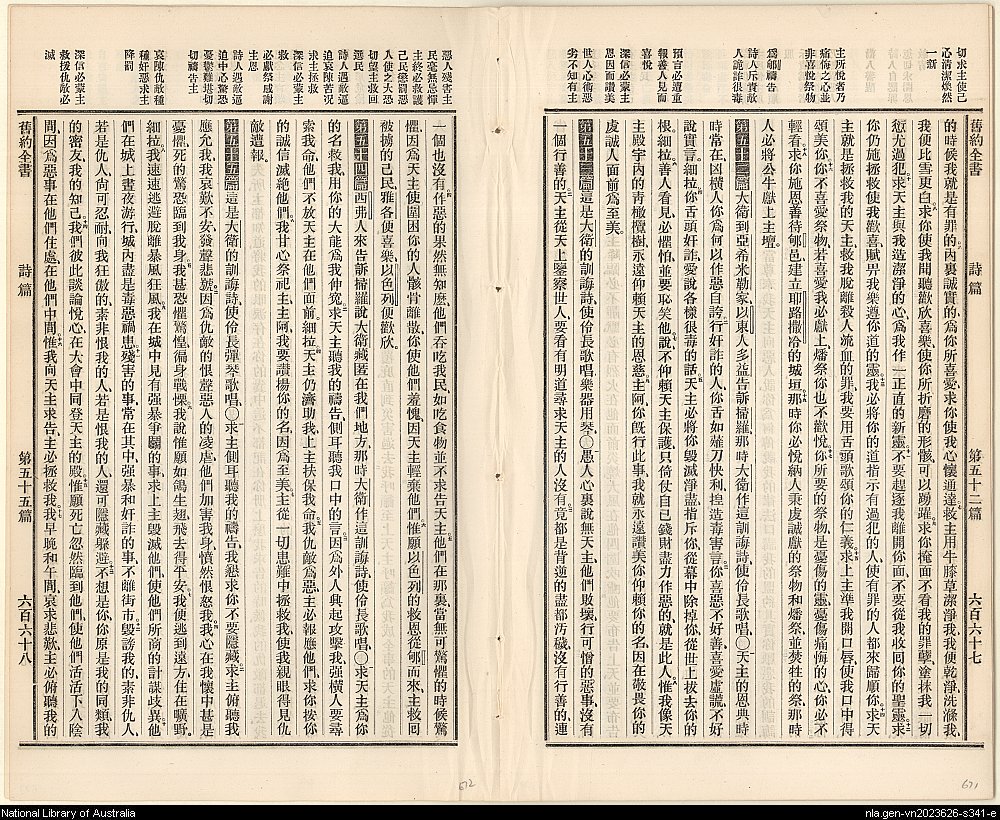 切求主使己
心清潔煥然
一新
主所悅者乃
痛悔之心並
非喜悅祭物
爲郇禱告
詩人斥責敵
人詭詐很毒
預言必遭重
報善人見而
喜悅
深信必蒙主
恩因而讚美
世人心術惡
劣不知有主
舊約全書 詩篇 第五十二篇 六百六十七
的時候我就是有罪的、內裏誠實的、爲你所喜愛、求你使我心懷通達、救主用牛膝草潔淨我、我便乾淨、洗滌我、
我便比雪更白、求你使我聞聽歡欣喜樂、使你所折磨的形骸、可以踴躍、求你掩面不看我的罪孽、塗抹我一切
愆尤過犯、求天主與我造潔淨的心、爲我作一正直的新靈、不要趕逐我離開你面、不要從我收回你的聖靈、求
你仍施拯救使我歡喜、賦畀我樂遵你道的靈、我必將你的道指示有過犯的人、使有罪的人都來歸順你、求天
主就是拯救我的天主、救我脫離殺人流血的罪、我要用舌頭歌頌你的仁義、求上主準我開口唇、使我口中得
頌美你、你不喜愛祭物、若喜愛我必獻上、燔祭你也不歡悅、你所要的祭物、是憂傷的靈、憂傷痛悔的心、你必不
輕看、求你施恩善待郇邑、建立耶路撒冷的城垣、那時你必悅納人秉虔誠獻的祭物、和燔祭、並焚牲的祭、那時
人必將公牛獻上主壇。
第五十二篇 大衛到亞希米勒家、以東人多益告訴掃羅、那時大衛作這訓誨詩、使伶長歌唱、〇天主的恩典時
時常在、凶橫人你爲何以作惡自誇、行奸詐的人、你舌如薙刀快利、揑造毒害言、你喜惡不好善、喜愛虛謊不好
說實言、細拉你舌頭奸詐、愛說各樣很毒的話、天主必將你毀滅淨盡、指斥你、從幕中除掉你、從世上拔去你的
根、細拉善人看見必懼怕、並要恥笑他、說不仰賴天主保護、只倚仗自己錢財、盡力作惡的、就是此人、惟我像天
主殿宇內的青橄欖樹、永遠仰賴天主的恩慈、主阿你旣行此事、我就永遠讚美你、仰賴你的名、因在敬畏你的
虔誠人面前、爲至美。
第五十三篇 這是大衛的訓誨詩、使伶長歌唱、樂器用琴、〇愚人心裏說無天主、他們敗壞、行可憎的惡事、沒有
一個行善的、天主從天上鑒察世人、要看有明道尋求天主的人沒有、竟都是背逆的、盡都汚穢、沒有行善的、連
惡人殘害主
民毫無忌憚
主終必救護
己民懲罰惡
人使之大恐
切望主救回
選民
詩人遇敵逼
迫哀陳苦况
求主拯救
深信必蒙主
救
必獻祭感謝
主恩
詩人遇敵逼
迫中心驚恐
憂鬱難堪切
切禱告主
哀陳仇敵種
種奸惡求主
降罰
深信必蒙主
救援仇敵必
滅
舊約全書 詩篇 第五十五篇 六百六十八
一個也沒有、作惡的果然無知麼、他們吞吃我民、如吃食物、並不求告天主、他們在那裏、當無可驚懼的時候驚
懼、因爲天主使圍困你的人骸骨離散、你使他們羞愧、因天主輕棄他們、惟願以色列的救恩從郇而來、主救回
被擄的己民、雅各便喜樂、以色列便歡欣。
第五十四篇 西弗人來告訴掃羅、說大衛藏匿在我們地方、那時大衛作這訓誨詩、使伶長歌唱、〇求天主爲你
的名救我、用你的大能爲我伸寃、求天主聽我的禱告、側耳聽我口中的言、因爲外人興起攻擊我、强橫人要尋
索我命、他們不放天主在他們面前、細拉、天主仍濟助我、上主扶保我命、我仇敵爲惡、主必報應他們、求你按你
的誠信滅絕他們、我甘心祭祀主、主阿我要讚揚你的名、因爲至美、主從一切患難中拯救我、使我親眼得見仇
敵遭報。
第五十五篇 這是大衛的訓誨詩、使伶長彈琴歌唱、〇求天主側耳聽我的禱告、我懇求你不要隱藏、求主俯聽我
應允我、我哀歎不安、發聲悲就、因爲仇敵的恨聲、惡人的凌虐、他們加害我身、憤然恨怒我、我心在我懷中甚是
憂懼、死的驚恐臨到我身、我甚恐懼驚惶、徧身戰慄、我說惟願如鴿生翅、飛去得平安、我便逃到遠方、住在曠野、
細拉、我速速逃避、脫離暴風狂風、我在城中見有强暴爭鬭的事、求上主毀滅他們、使他們所商的計謀歧異、他
們在城上晝夜游行、城內盡是毒惡禍患、殘害的事常在其中、强暴和奸詐的事、不離街市、毀謗我的、素非仇人、
若是仇人、尙可忍耐、向我狂傲的、素非恨我的人、若是恨我的人、還可隱藏躲避、不想是你、你原是我的同類、我
的密友我的知己、我們彼此談論悅心、在大會中同登天主的殿、惟願死亡忽然臨到他們、使他們活活下入陰
間、因爲惡事在他們住處、在他們中間、惟我向天主求告、主必拯救我、我早晚和午間、哀求悲歎、主必俯聽我的
672
671
National Library of Australia
nla.gen-vn2023626-s341-e